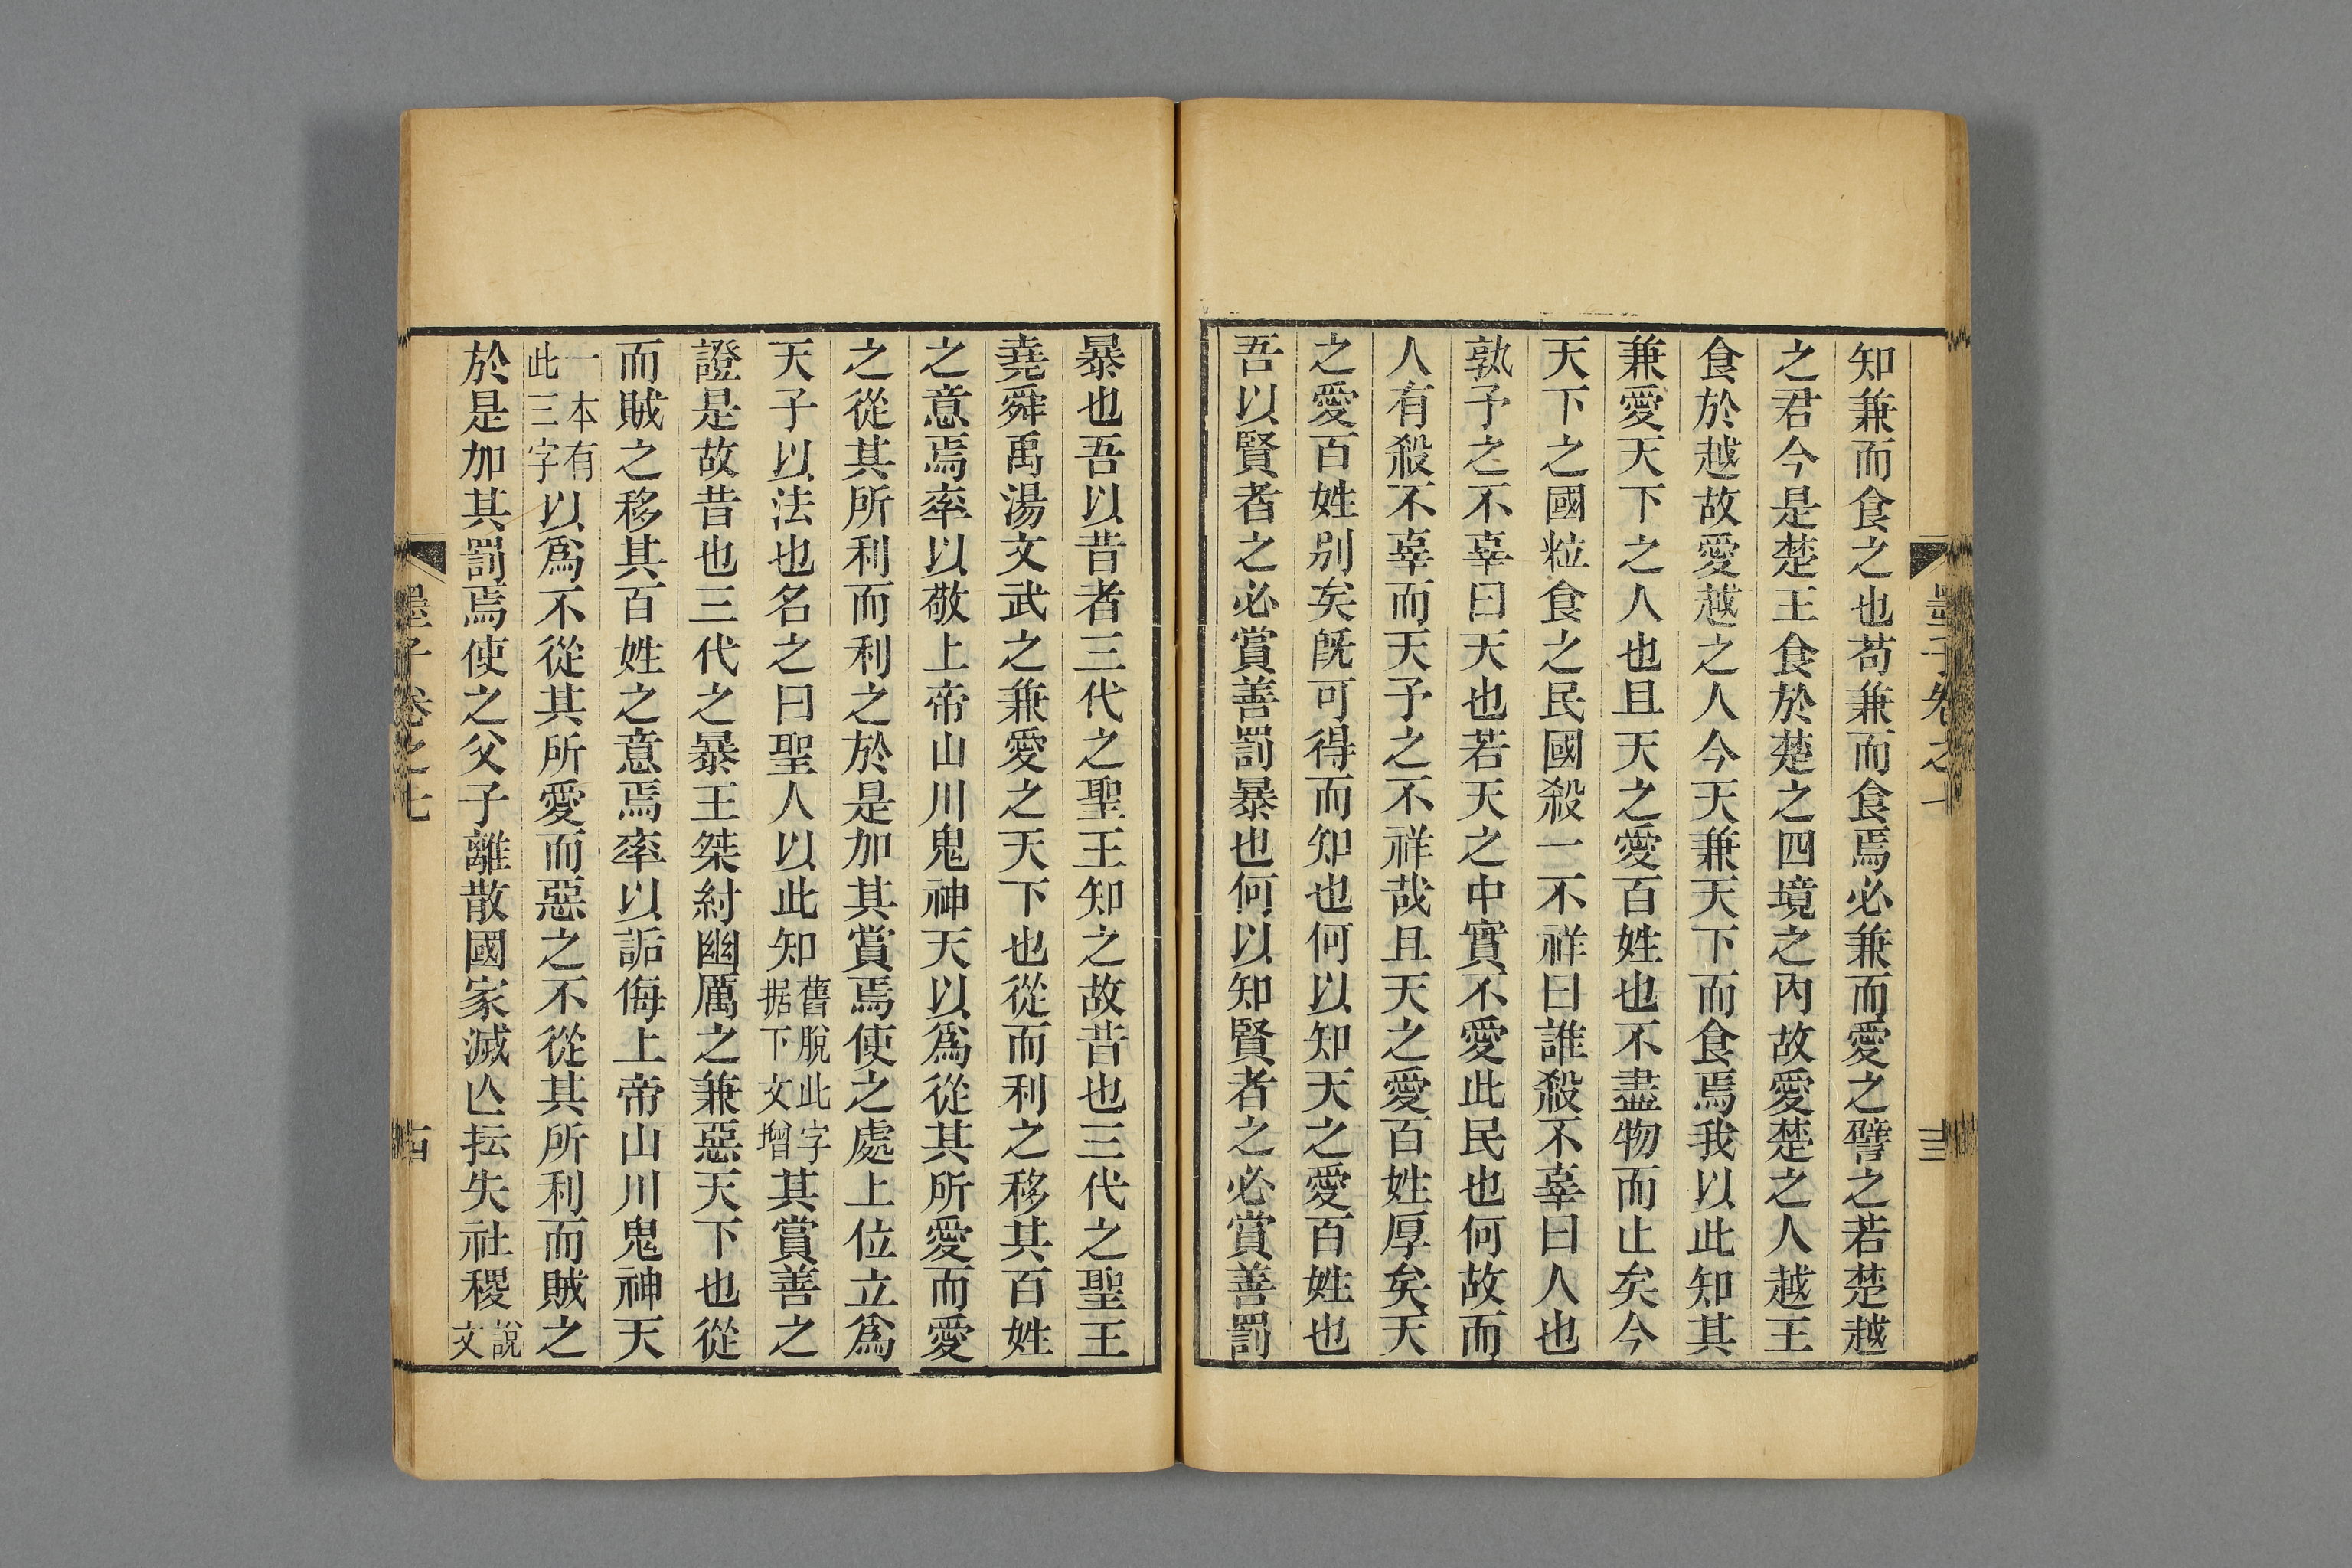 知兼而食之也苟兼而食焉必兼而愛之譬之若楚越
之君今是楚王食於楚之四境之內故愛楚之人越王
食於越故愛越之人今天兼天下而食焉我以此知其
兼愛天下之人也且天之愛百姓也不盡物而止矣今
天下之國粒食之民國殺一不祥曰誰殺不辜曰人也
孰予之不辜曰天也若天之中實不愛此民也何故而
人有殺不辜而天予之不祥哉且天之愛百姓厚矣天
之愛百姓別矣既可得而知也何以知天之愛百姓也
吾以賢者之必賞善罰暴也何以知賢者之必賞善罰
暴也吾以昔者三代之聖王知之故昔也三代之聖王
堯舜禹湯文武之兼愛之天下也從而利之移其百姓
之意焉率以敬上帝山川鬼神天以為從其所愛而愛
之從其所利而利之於是加其賞焉使之處上位立為
天子以法也名之曰聖人以此知舊脫此字据下文增其賞善之
證是故昔也三代之暴王桀紂幽厲之兼惡天下也從
而賊之移其百姓之意焉率以詬侮上帝山川鬼神天
一本有此三字以為不從其所愛而惡之不從其所利而賊之
於是加其罰焉使之父子離散國家滅亾抎失社稷說文
墨子卷之七